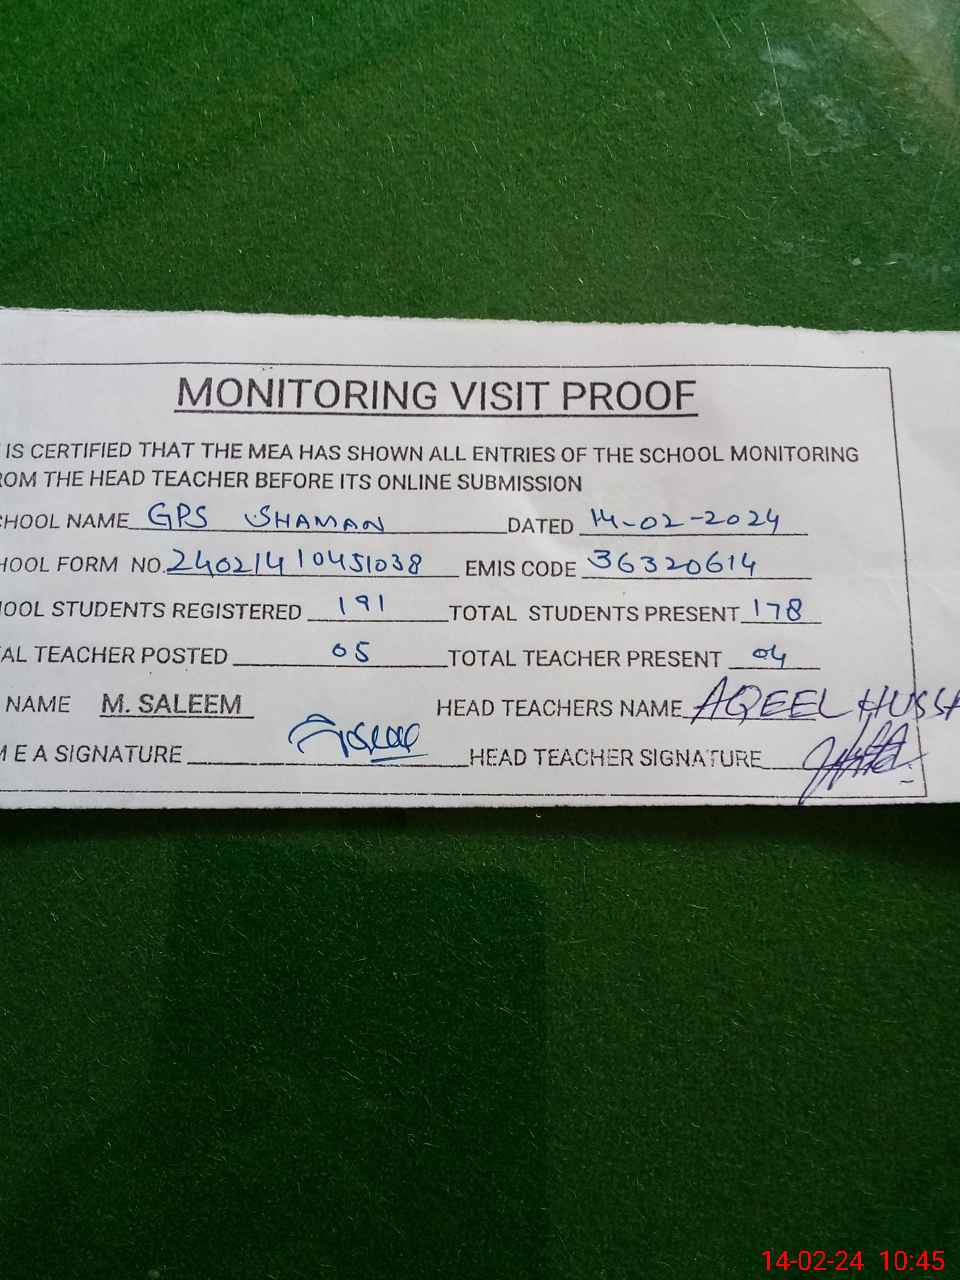 MONITORING VISIT PROOF
IS CERTIFIED THAT THE MEA HAS SHOWN ALL ENTRIES OF THE SCHOOL MONITORING
ROM THE HEAD TEACHER BEFORE ITS ONLINE SUBMISSION
CHOOL NAME GPS SHAMAN DATED 14-02-2024
HOOL FORM NO. 24021410451038 EMIS CODE 36320614
OOL STUDENTS REGISTERED 191 TOTAL STUDENTS PRESENT 178
AL TEACHER POSTED 05 TOTAL TEACHER PRESENT 04
NAME M. SALEEM HEAD TEACHERS NAME AQEEL HUSSA
M E A SIGNATURE HEAD TEACHER SIGNATURE
14-02-24 10:45